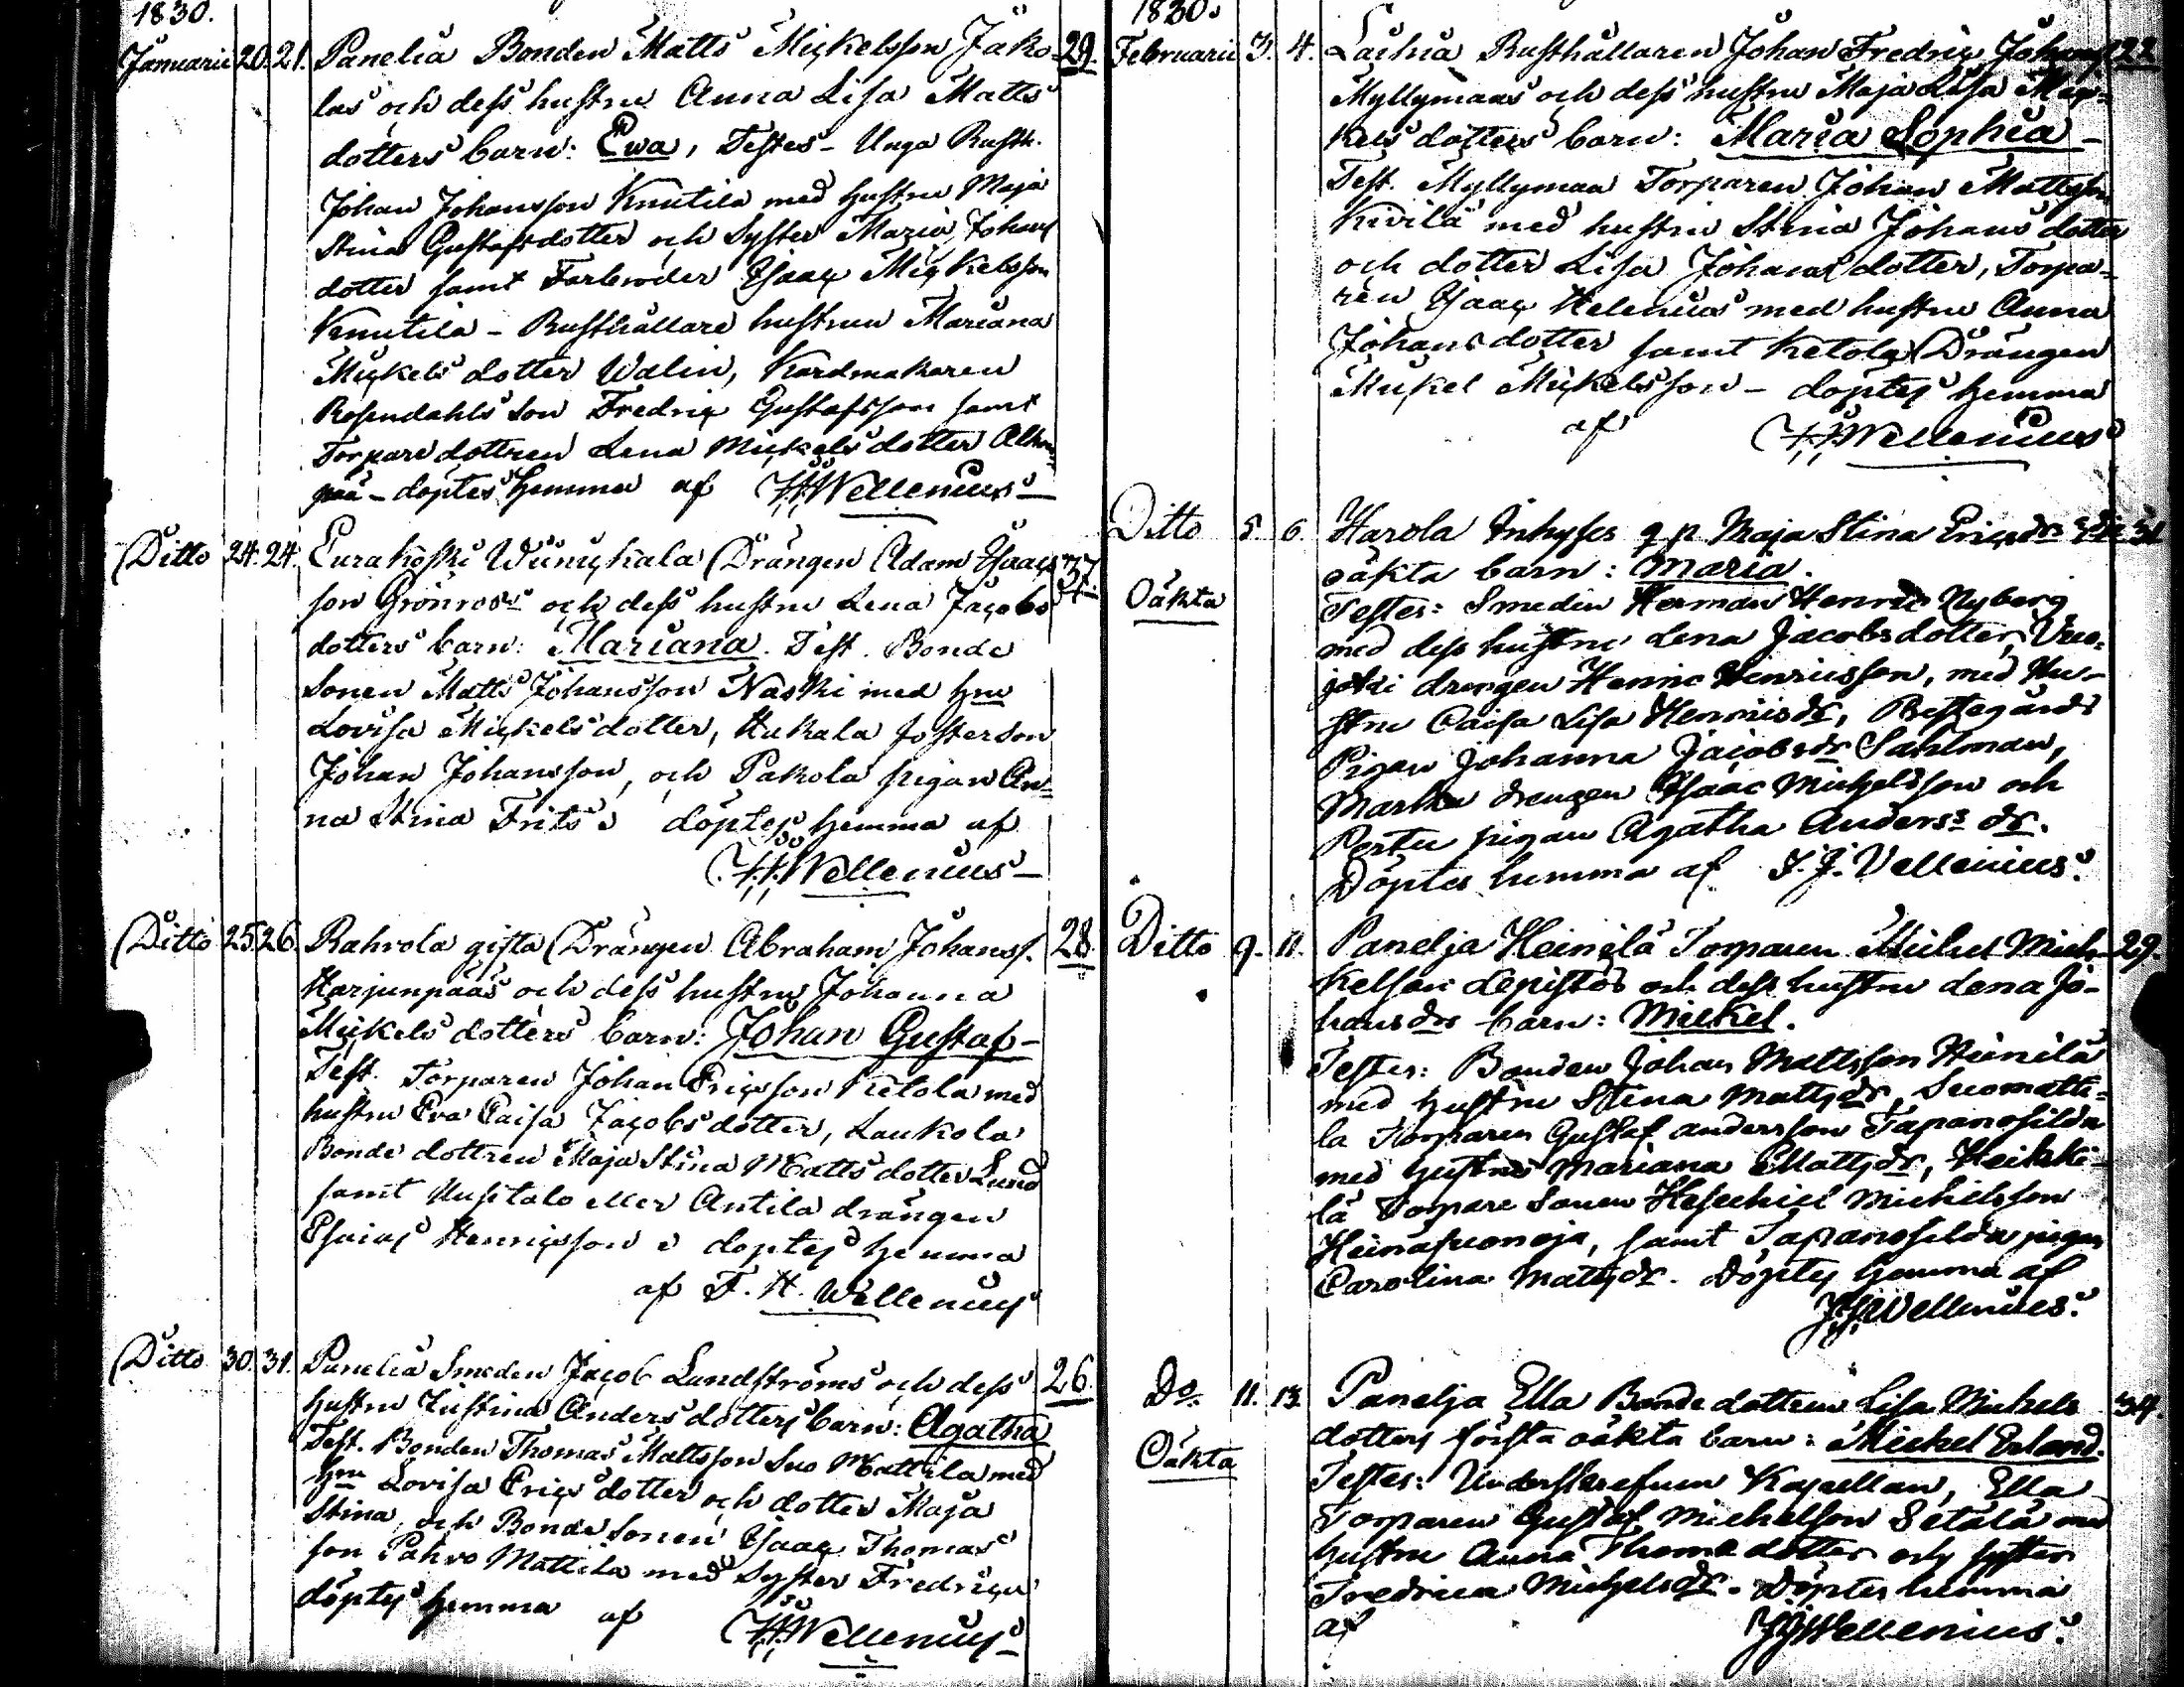 1830.
Januarii 20. 21. Panelia Bonden Matts Mickelsson Jako- 29.
las och dess hustru Anna Lisa Matts
dotters barn: Ewa, Testes - Unga Rusth.
Johan Johansson Knutila med hustru Maja
Stina Gustafsdotter och Syster Maria Johans
dotter samt Farbroder Isaac Mickelsson
Knutila - Rusthållare hustrun Mariana
Mickels dotter Walin, Kardmakaren
Rosendahls son Fredric Gustafsson samt
Torpare dottren Lena Mickels dotter Alhon-
pää - döptes hemma af F.H. Wellenius
Ditto 24. 24. Eurakoski Drängen Adam Isaacs 37.
son Grönroos och dess hustru Lena Jacobs
dotters barn: Mariana. Test. Bonde
Sonen Matts Johansson Naski med hru
Lovisa Mickels dotter, Kukala fosterson
Johan Johansson, och Pakola pigan An-
na Stina Frits döptes hemma af
F.H. Wellenius
Ditto 25. 26. Rahvola gifta Drängen Abraham Johanss. 28.
Harjunpääs och dess hustru Johanna
Mickels dotters barn: Johan Gustaf -
Test. Torparen Johan Ericsson Ketola med
hustru Eva Caisa Jacobs dotter, Laukola
Bonde dottren Maja Stina Matts dotter Lund
samt Uusitalo eller Antila drängen
Esaias Henricsson döptes hemma
af F. H. Wellenius
Ditto 30. 31. Panelia Smeden Jacob Lundströms och dess 26.
hustru Justina Anders dotters barn: Agatha
Test. Bonden Thomas Mattsson Suo Mattila med
hru Lovisa Erics dotter och dotter Maja
Stina, och Bonde Sonen Isaac Thomas
son Pahvo Mattila med Syster Fredrica
döptes hemma af F.H. Wellenius
1830.
Februarii 3. 4. Laihia Rusthållaren Johan Fredric Johans 22.
Myllymaas och dess hustru Maja Lisa Mic-
kels dotters barn: Maria Sophia -
Test. Myllymaa Torparen Johan Mattsson
Kivilä med hustru Stina Johans dotter
och dotter Lisa Johans dotter, Torpa-
ren Isaac Helenius med hustru Anna
Johans dotter samt Ketola Drängen
Mickel Mickelsson - döptes hemma
af F.H. Wellenius
Ditto 5. 6. Harola Inhyses q.p. Maja Stina Ericsdrs 3die 31
Oäkta oäkta barn: Maria.
Testes: Smeden Herman Henric Nyberg
med dess hustru Lena Jacobsdotter, Vuo-
joki drengen Henric Henricsson, med Hu-
stru Caisa Lisa Henricsdr, Prestegårds
Pigan Johanna Jacobsdr Sahlman,
drengen Isaac Michelsson och
Perttu pigan Agatha Anders dr.
Döptes hemma af F.H. Vellenius.
Ditto 9. 11. Panelja Heinilä Torparen Mickel Mic- 29.
kelsson Lepistös och dess hustru Lena Jo-
hansdrs barn: Mickel.
Testes: Bonden Johan Mattsson Heinilä
med hustru Stina Mattsdr, Suomatti-
la Torparen Gustaf Andersson Tapanosilda
med hustru Mariana Mattsdr, Heikki-
lä Torpare Sonen Hesechiel Mickelsson
Heinäsuonoja, samt Tapanosilda pigan
Carolina Mattsdr. Döptes hemma af
F.H. Wellenius.
Do. 11. 13. Panelja Ella Bonde dottrens Lisa Michels 34.
Oäkta dotters första oäkta barn: Mickel Erland.
Testes: Underskrefven Kapellan, Ella
Torparen Gustaf Michelsson Setälä med
hustru Anna Thomæ dotter och syster
Fredrica Michelsdr. Döptes hemma
af F.H. Wellenius.